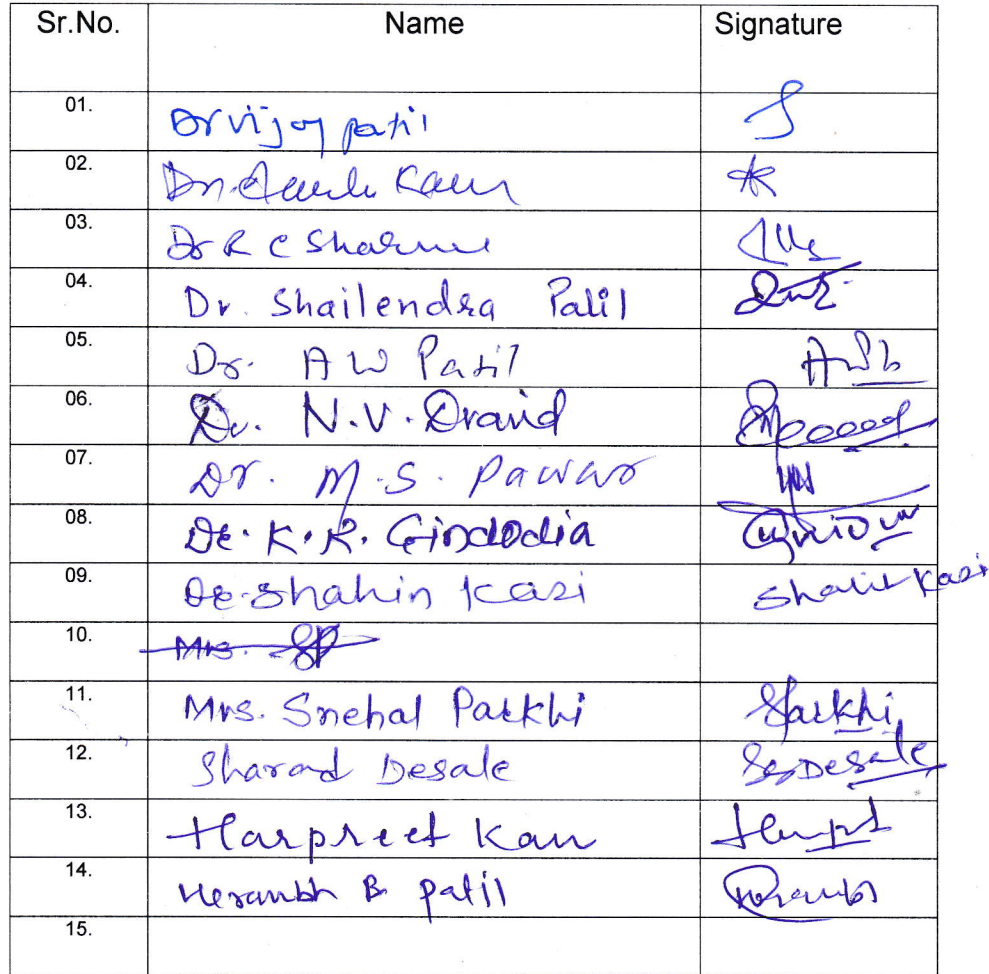 Sr.No. Name Signature
01. Dr vijay patil
02. Dr. Kaur
03. Dr R C Sharma
04. Dr. Shailendra Patil
05. Dr. A W Patil
06. Dr. N.V. Dravid
07. Dr. M.S. Pawar
08. Dr. K.R. Gindodia
09. Dr. Shahin Kazi Shahin Kazi
10. Mrs. SP
11. Mrs. Snehal Parkhi SParkhi
12. Sharad Desale Desale
13. Harpreet Kaur
14. Heranbh B patil
15.